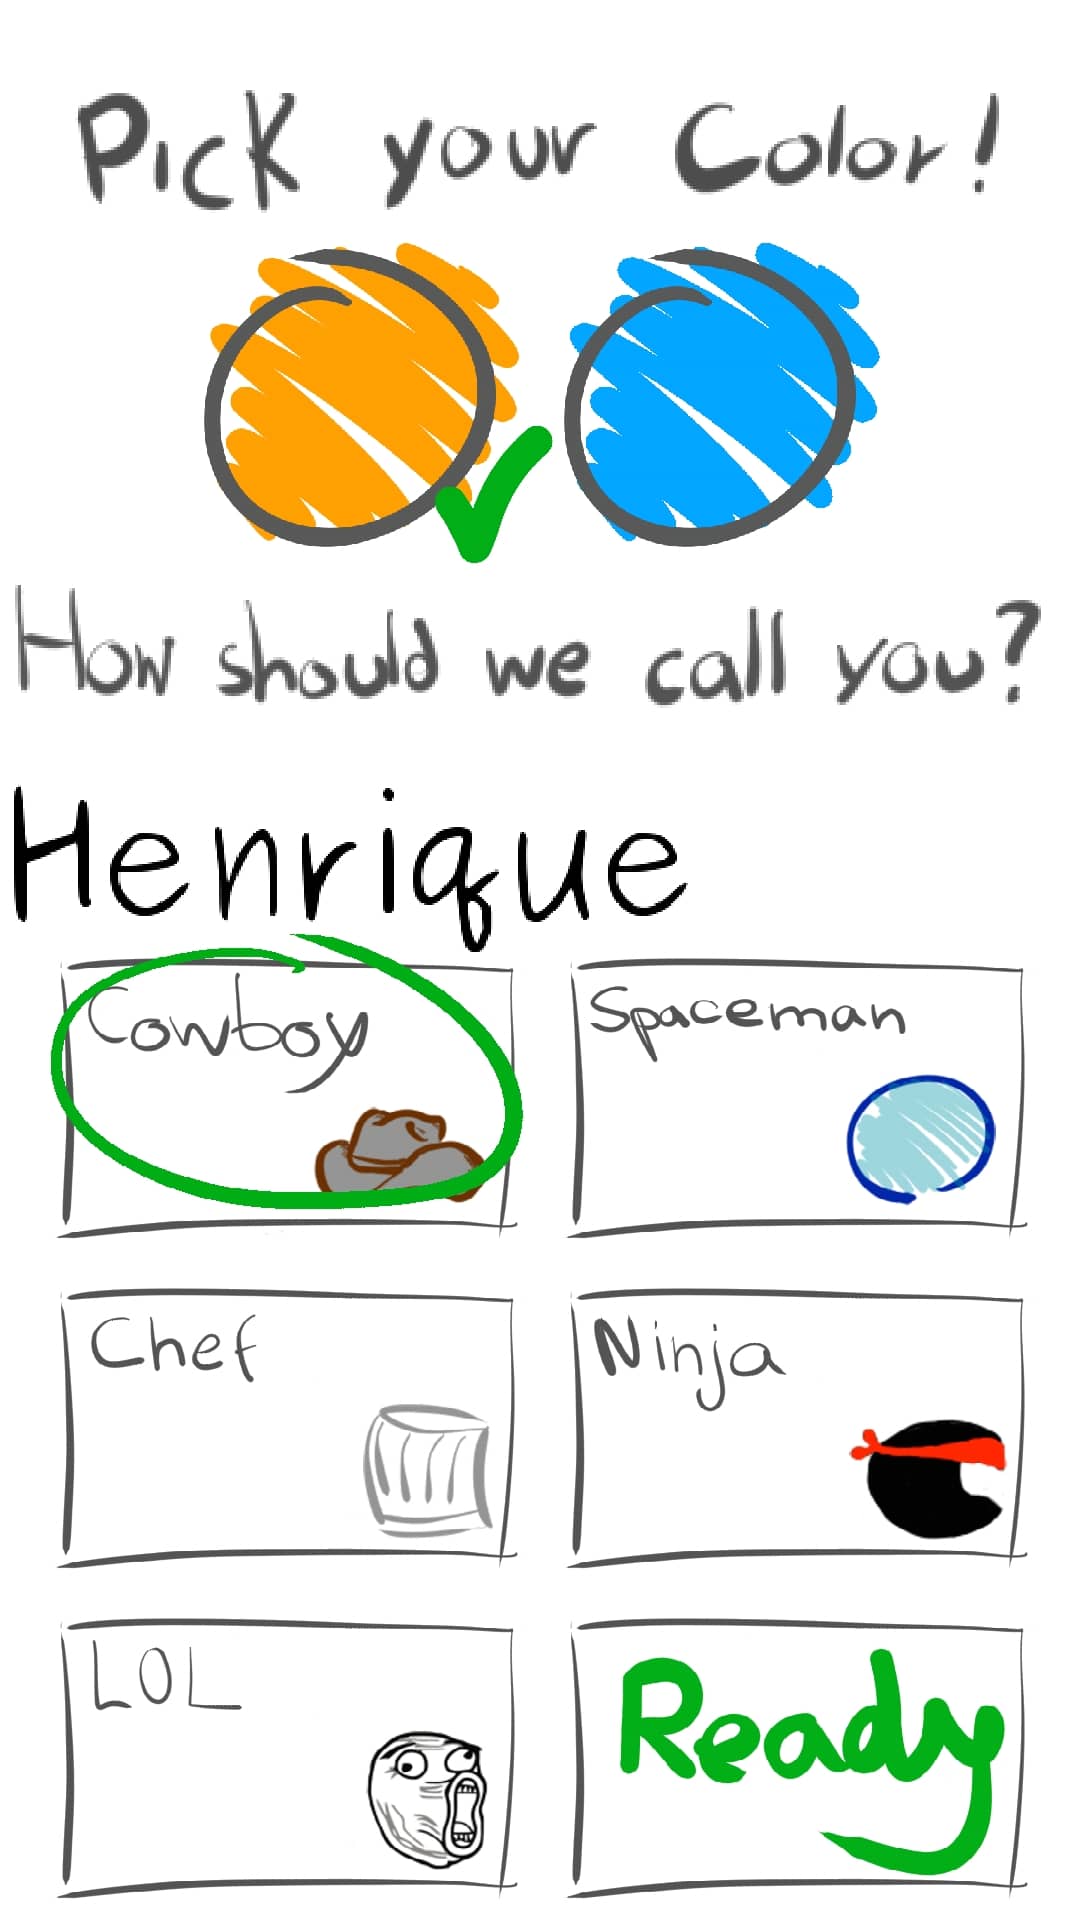 Pick your Color!
How should we call you?
Henrique
Cowboy
Spaceman
Chef
Ninja
LOL
Ready